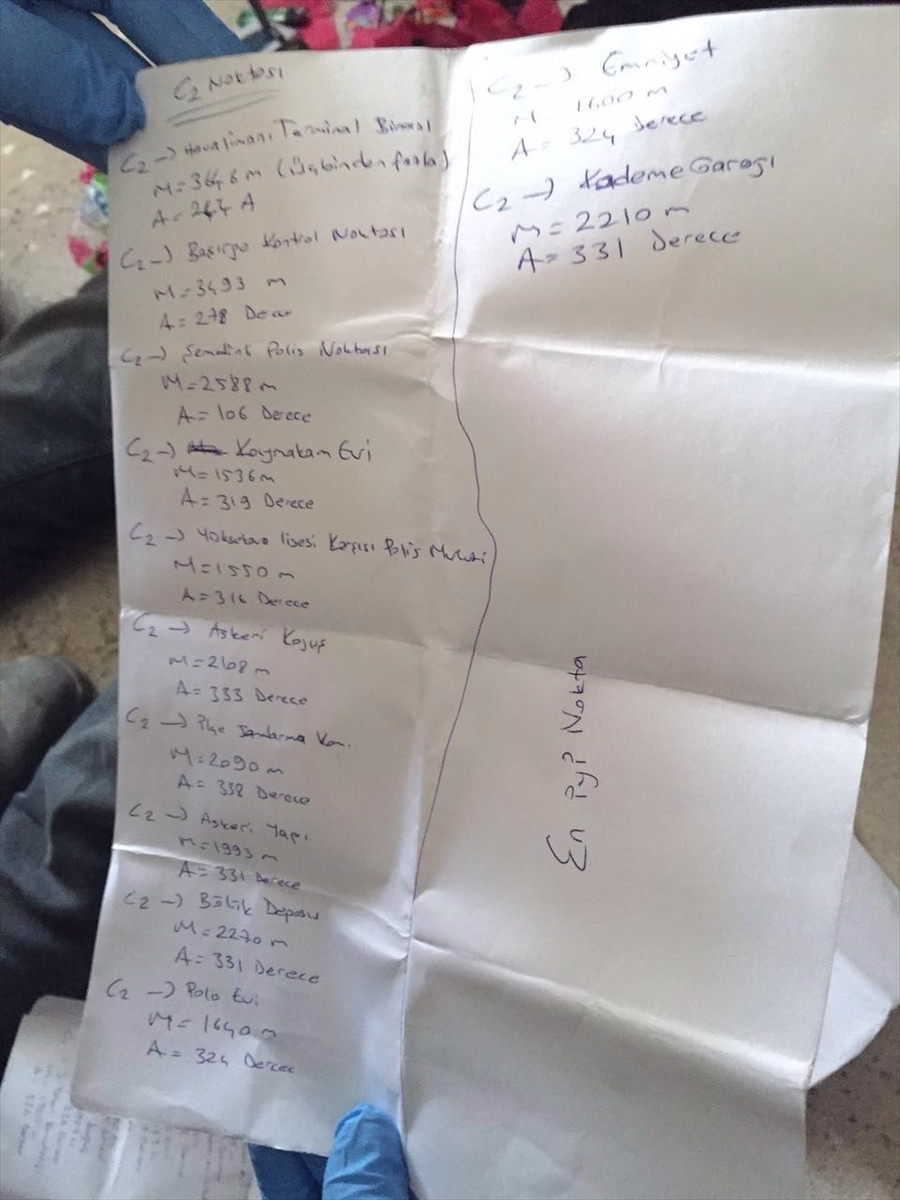 C2 Noktası
C2 → Havalimanı Terminal Binası
M = 3646 m (üç binden fazla)
A = A
C2 → Kontrol Noktası
M = 3493 m
A = 278
C2 → Polis Noktası
M = 2588 m
A = 106 Derece
C2 → Kaymakam Evi
M = 1536 m
A = 319 Derece
C2 → lisesi Karşısı Polis
M = 1550 m
A = 316 Derece
C2 → Askeri Koğuş
M = 2108 m
A = 333 Derece
C2 → İlçe Jandarma Kom.
M = 2090 m
A = 338 Derece
C2 → Askeri Yapı
M = 1993 m
A = 331 Derece
C2 → Bölük Deposu
M = 2270 m
A = 331 Derece
C2 → Evi
M = 1640 m
A = 324 Derece
C2 → Emniyet
M = 1600 m
A = 324 Derece
C2 → Kademe Garajı
M = 2210 m
A = 331 Derece
En iyi Nokta